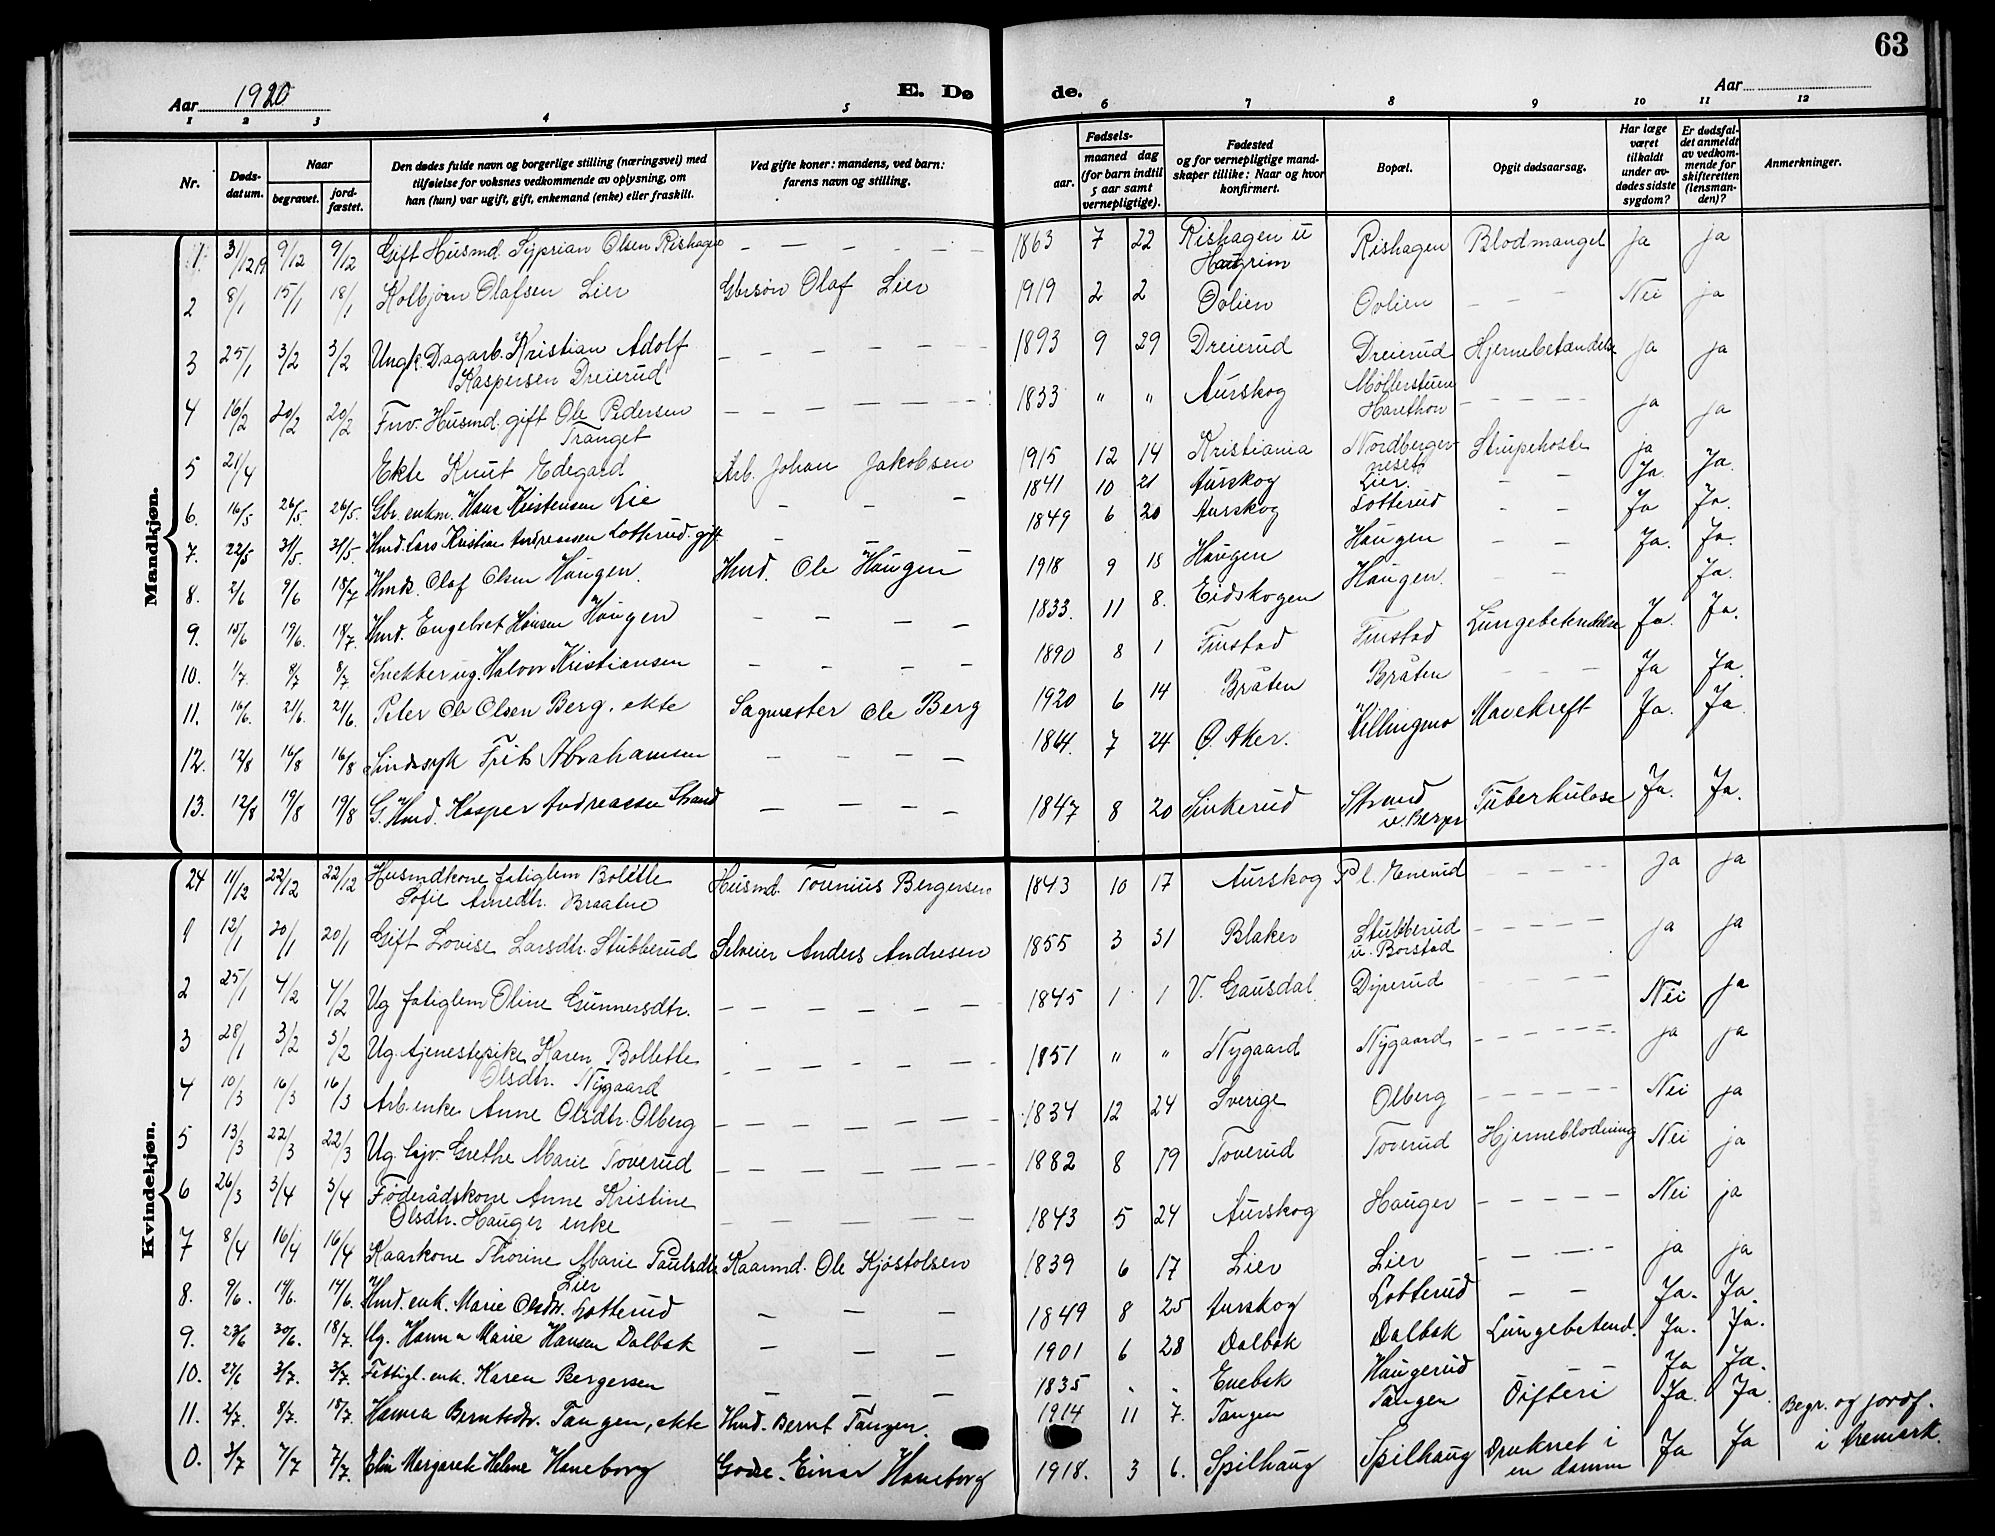 63
Aar 1920
E. Dø
de.
Aar
1 2 3 4 5 6 7 8 9 10 11 12
Nr. Døds-datum. Naar begravet. jord-fæstet. Den dødes fulde navn og borgerlige stilling (næringsvei) med tilføielse for voksnes vedkommende av oplysning, om han (hun) var ugift, gift, enkemand (enke) eller fraskilt. Ved gifte koner: mandens, ved barn: farens navn og stilling. Fødsels- aar. maaned dag (for barn indtil 5 aar samt vernepligtige). Fødested og for vernepligtige mand-skaper tillike: Naar og hvor konfirmert. Bopæl. Opgit dødsaarsag. Har læge været tilkaldt under av-dødes sidste sygdom? Er dødsfal-det anmeldt av vedkom-mende for skifteretten (lensman-den)? Anmerkninger.
Mandkjøn.
1. 31/12 19 9/12 9/12 Gift Husmd. Syprian Olsen Rishagen — — — — — 1863 7 22 Rishagen u Haugrim Rishagen Blodmangel Ja ja
2 8/1 15/1 18/1 Kolbjørn Olafsen Lier Gbrsøn Olaf Lier 1919 2 2 Ovlien Ovlien — — — Nei ja
3 25/1 3/2 3/2 Ungk. Dagarb. Kristian Adolf Kaspersen Dreierud — — — — — 1893 9 29 Dreierud Dreierud Hjernebetændelse ja ja
4 16/2 20/2 20/2 Fnv. Husmd. gift Ole Pedersen Tranget — — — — — 1833 " " Aurskog Møllerstuen Harethon — — — — ja ja
5 21/4 Ekte Knut Edegard Arb. Johan Jakobsen 1915 12 14 Kristiania Nordberger-neset Strupehoste ja Ja.
6. 16/5 26/5. 26/5. Gbr. enkm. Hans Kristensen Lie — — — 1841 10 21 Aurskog Lier. — — Ja. Ja.
7. 22/5 31/5. 31/5. Hmd. Lars Kristian Andreassen Lotterud. gift — — 1849 6 20 Aurskog Lotterud — — Ja Ja.
8. 2/6 9/6 18/7 Hmds. Olaf Olsen Haugen. Hmd. Ole Haugen 1918 9 15 Haugen Haugen — — Ja. Ja.
9. 15/6 19/6. 18/7. Hmd. Engebret Hansen Haugen — — — — 1833. 11 8. Eidskogen Haugen. — — Ja.
10. 1/7. 8/7 8/7. Snekker ug. Halvor Kristiansen — — — — 1890 8 1 Finstad Finstad Lungebetendelse Ja. Ja.
11. 16/6. 21/6. 21/6. Peter Ole Olsen Berg. ekte Sagmester Ole Berg 1920 6 14 Bråten Bråten — — — Ja Ja.
12. 12/8 16/8 16/8 Sindssyk Frits Abrahamsen — — — — 1864. 7 24 Ø. Aker. Killingmo Mavekreft Ja. Ja.
13. 12/8 19/8 19/8 G. Hmd. Kasper Andreassen Strand — — — 1847 8 20 Sinkerud Strand u. Berger Tuberkulose Ja. Ja.
Kvindekjøn.
24 11/12 22/12 22/12 Husmdkone fatiglem Bolette Sofie Arnedtr. Braaten Husmd. Torenius Bergersen 1843 10 17 Aurskog Pl. Enerud — — — — ja ja
1 12/1 20/1 20/1 Gift Lovise Larsdtr. Stubberud Selveier Anders Andresen 1855 3 31 Blaker Stubberud u. Borstad — — — — ja ja
2 25/1 4/2 4/2 Ug fatiglem Oline Gunnersdtr. — — — — — 1845 1 1 V. Gausdal Dyrerud — — — — Nei ja
3 28/1 3/2 3/2 Ug. tjenestepike Karen Bollette Olsdtr. Nygaard — — — — — 1851 " " Nygaard Nygaard — — — — ja ja
4 10/3 16/3 16/3 Arb. enke Anne Olsdtr. Olberg — — — — — 1834 12 24 Sverige Olberg — — — — Nei ja
5 13/3 22/3 22/3 Ug. Grethe Marie Toverud — — — — — 1882 8 19 Toverud Toverud Hjerneblødning Nei ja
6 26/3 3/4 3/4 Føderådskone Anne Kristine Olsdtr. Hauger enke — — — — — 1843 5 24 Aurskog Hauger — — — — Nei ja
7 8/4 16/4 16/4 Kaarkone Thorine Marie Paulsdtr. Lier Kaarmd. Ole Kjøstolsen 1839 6 17 Lier Lier — — — — ja ja
8. 9/6. 14/6. 14/6. Hmd. enk. Marie Olsdtr. Lotterud — — — 1849 8 25 Aurskog Lotterud — — Ja. Ja.
9. 23/6 30/6. 18/7. Ug. Hanna Marie Hansen Dalbak — — — 1901 6 28 Dalbak Dalbak Lungebetend. Ja. Ja.
10. 27/6 3/7. 3/7. Fattigl. enk. Karen Bergersen — — — 1835 . . Enebak Haugerud — — Ja Ja.
11. 2/7. 8/7. 18/7. Hanna Berntsdtr. Tangen, ekte Hmd. Bernt Tangen. 1914 11 7. Tangen Tangen Difteri Ja. Ja.
0. 3/7 7/7 7/7. Elin Margarete Helene Haneborg Godse. Einar Haneborg 1918. 3 6. Spilhaug Spilhaug Druknet i en damm Ja Ja Begr. og jordf. i Aremark.